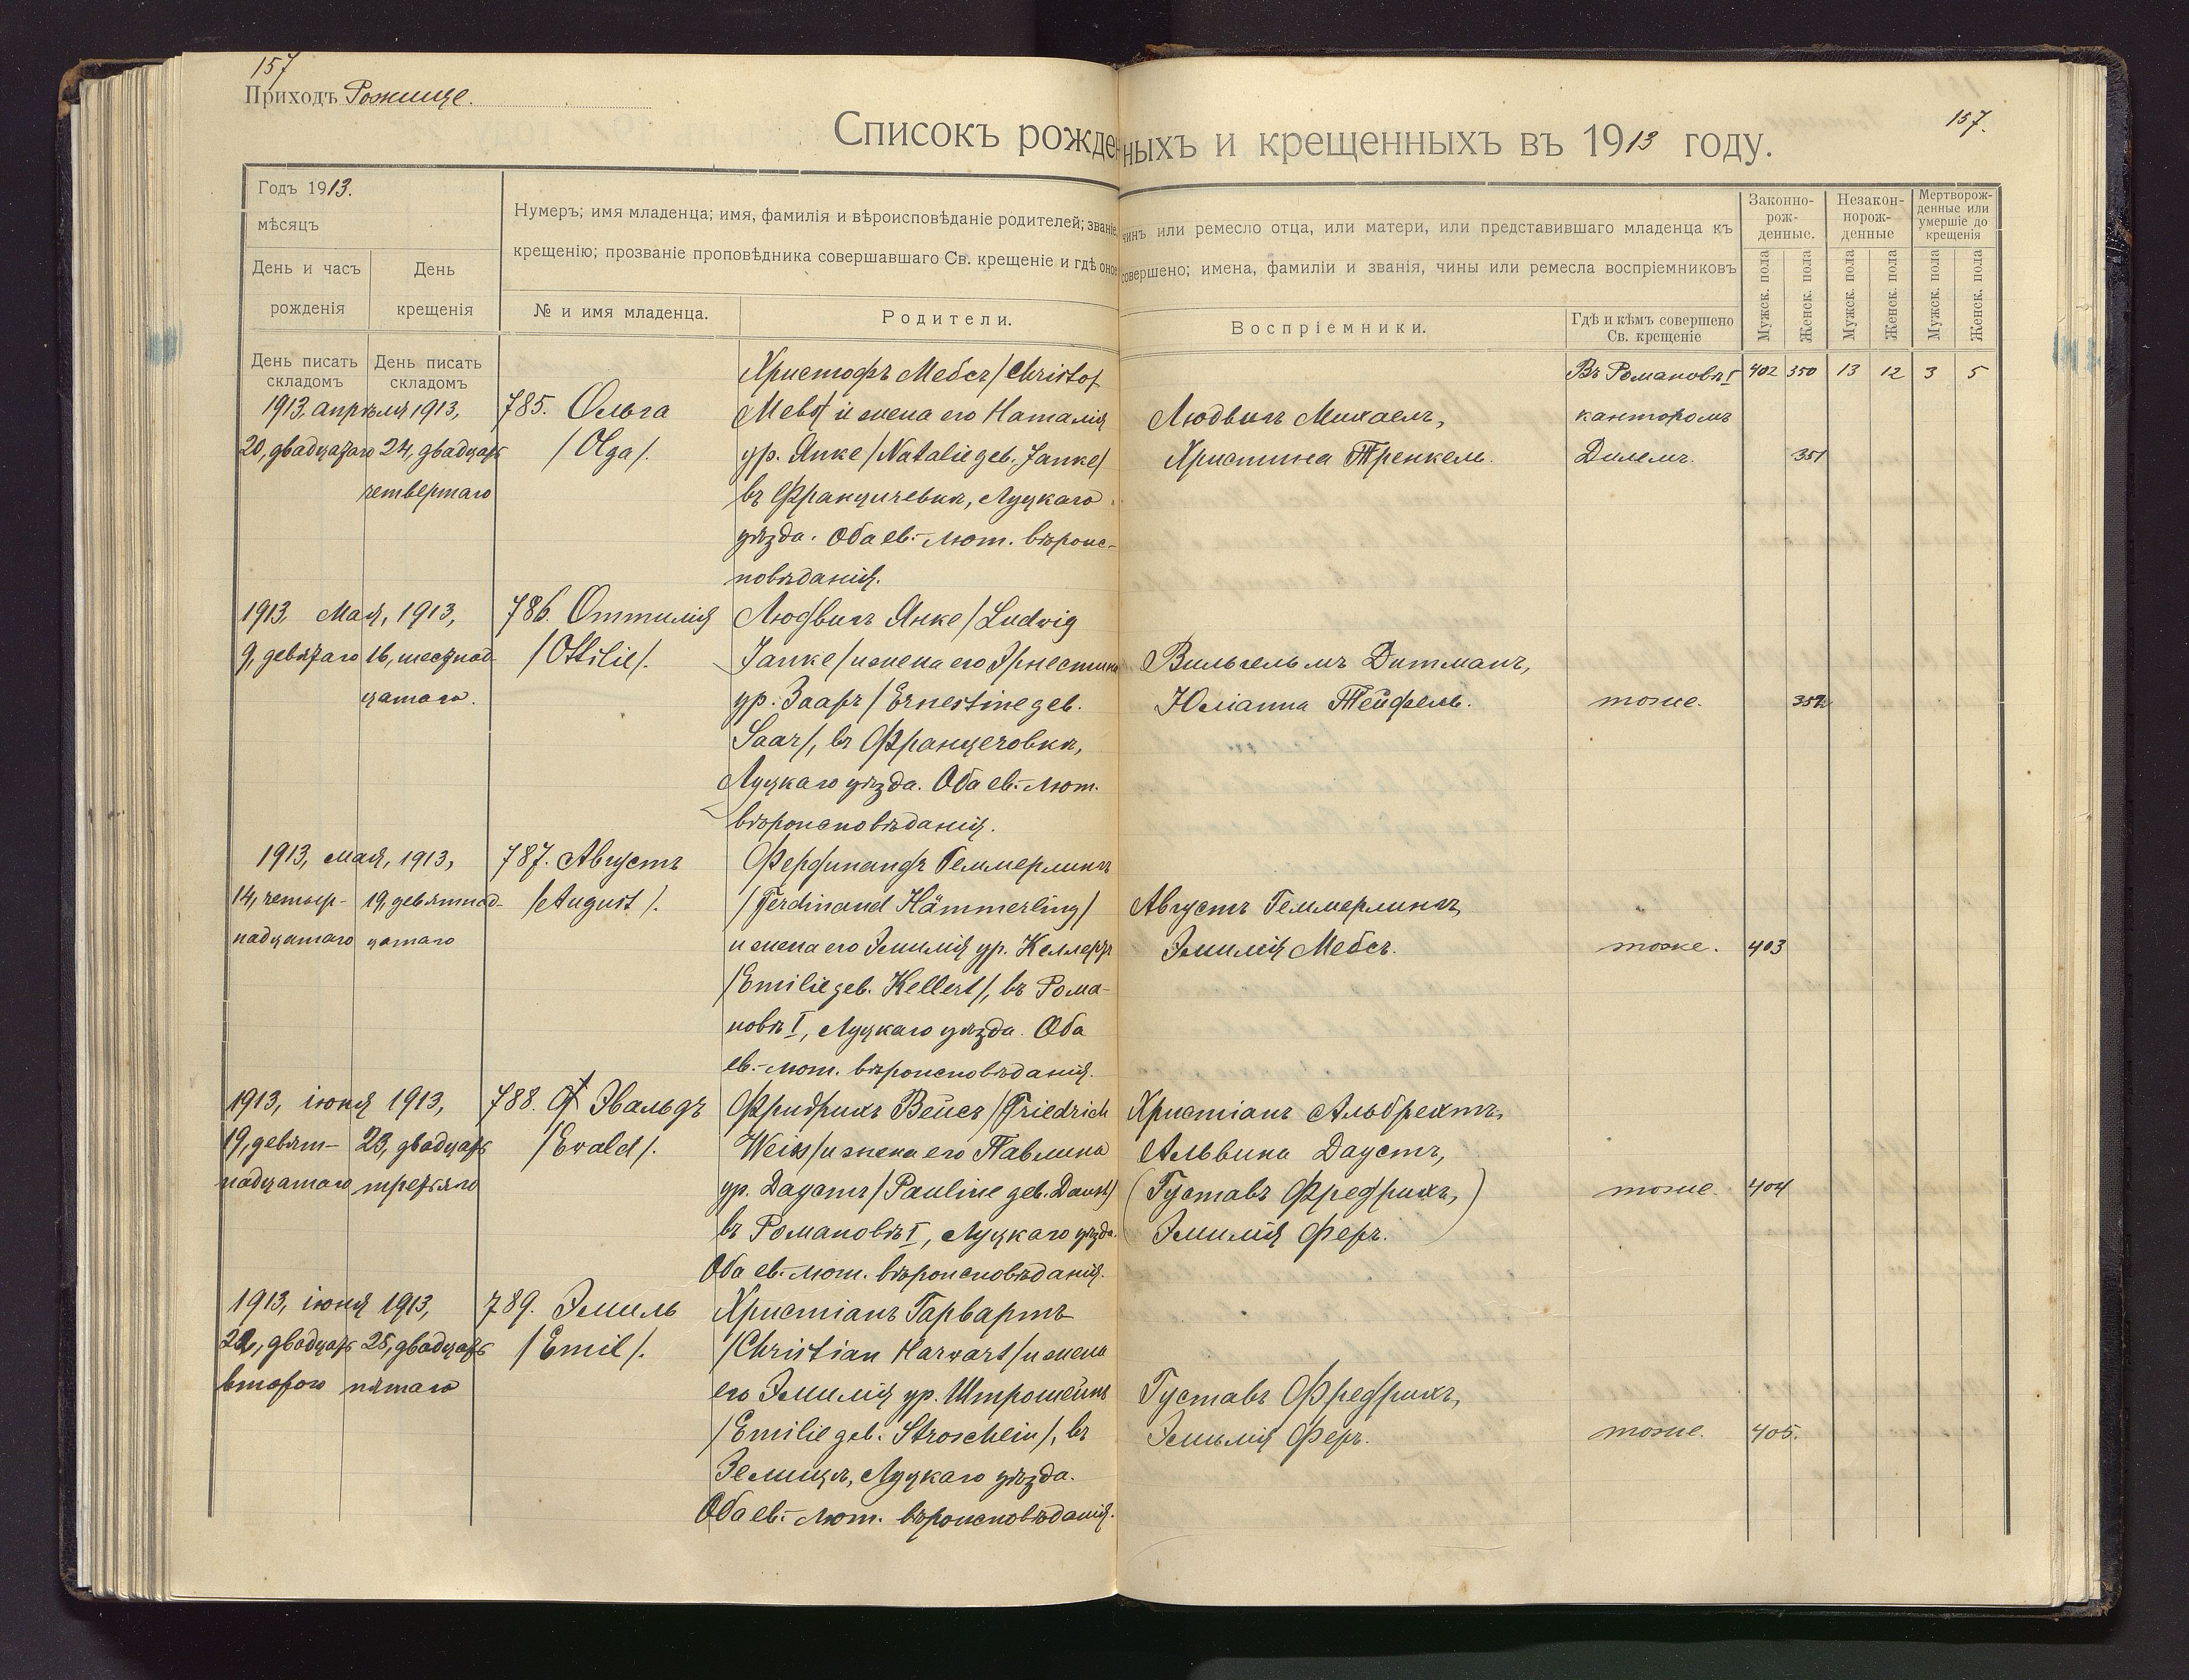 157
Приходъ Рожище.
157.
Списокъ рожденныхъ и крещенныхъ въ 1913 году.
Годъ 1913.
мѣсяцъ
День и часъ
рожденія
День
крещенія
Нумеръ; имя младенца; имя, фамилія и вѣроисповѣданіе родителей; званіе, чинъ или ремесло отца, или матери, или представившаго младенца къ
крещенію; прозваніе проповѣдника совершавшаго Св. крещеніе и гдѣ оное совершено; имена, фамиліи и званія, чины или ремесла воспріемниковъ
№ и имя младенца.
Родители.
Воспріемники.
Гдѣ и кѣмъ совершено
Св. крещеніе
Законно-
рож-
денные.
Незакон-
норож-
денные
Мертворож-
денные или
умершіе до
крещенія
Мужск. пола
Женск. пола
Мужск. пола
Женск. пола
Мужск. пола
Женск. пола
День писать
складомъ
День писать
складомъ
402 350 13 12 3 5
1913. апрѣля 1913,
20, двадцатаго 24, двадцать
четвертаго
785. Ольга
/Olga/.
Христофъ Мебсъ /Christof
Mebs/ и жена его Наталія
ур. Янке /Natalie geb. Janke/
въ Францишевкѣ, Луцкаго
уѣзда. Оба ев.-лют. вѣроис-
повѣданія.
Людвигъ Михаелъ,
Христина Тренкель.
Въ Романовѣ I
канторомъ
Дилемъ.
351
1913, Мая, 1913,
9, девятаго 16, шестнад-
цатаго.
786. Оттилія
/Ottilie/.
Людвигъ Янке /Ludwig
Janke/ и жена его Эрнестина
ур. Зааръ /Ernestine geb.
Saar/, въ Францечовкѣ,
Луцкаго уѣзда. Оба ев.-лют.
вѣроисповѣданія.
Вильгельмъ Дитманъ,
Юліанна Тейфель.
тоже.
352
1913, мая, 1913,
14, четыр- 19, девятнад-
надцатаго цатаго
787. Августъ
/August/.
Фердинандъ Геммерлингъ
/Ferdinand Hämmerling/
и жена его Эмилія ур. Келлертъ
/Emilie geb. Kellert/, въ Рома-
новѣ I, Луцкаго уѣзда. Оба
ев.-лют. вѣроисповѣданія.
Августъ Геммерлингъ,
Эмилія Мебсъ.
тоже.
403
1913, іюня 1913,
19, девят- 23, двадцать
надцатаго третьяго
788. Эвальдъ
/Ewald/.
Фридрихъ Вейсъ /Friedrich
Weiss/ и жена его Павлина
ур. Даустъ /Pauline geb. Daust/
въ Романовѣ I, Луцкаго уѣзда.
Оба ев.-лют. вѣроисповѣданія.
Христіанъ Альбрехтъ,
Альвина Даустъ,
(Густавъ Фредрихъ,)
Эмилія Феръ.
тоже.
404
1913, іюня 1913,
22, двадцать 25, двадцать
второго пятаго
789. Эмиль
/Emil/.
Христіанъ Гарвартъ
/Christian Harwart/ и жена
его Эмилія ур. Штрошейнъ
/Emilie geb. Stroschein/, въ
Земицѣ, Луцкаго уѣзда.
Оба ев.-лют. вѣроисповѣданія.
Густавъ Фредрихъ,
Эмилія Феръ.
тоже.
405.